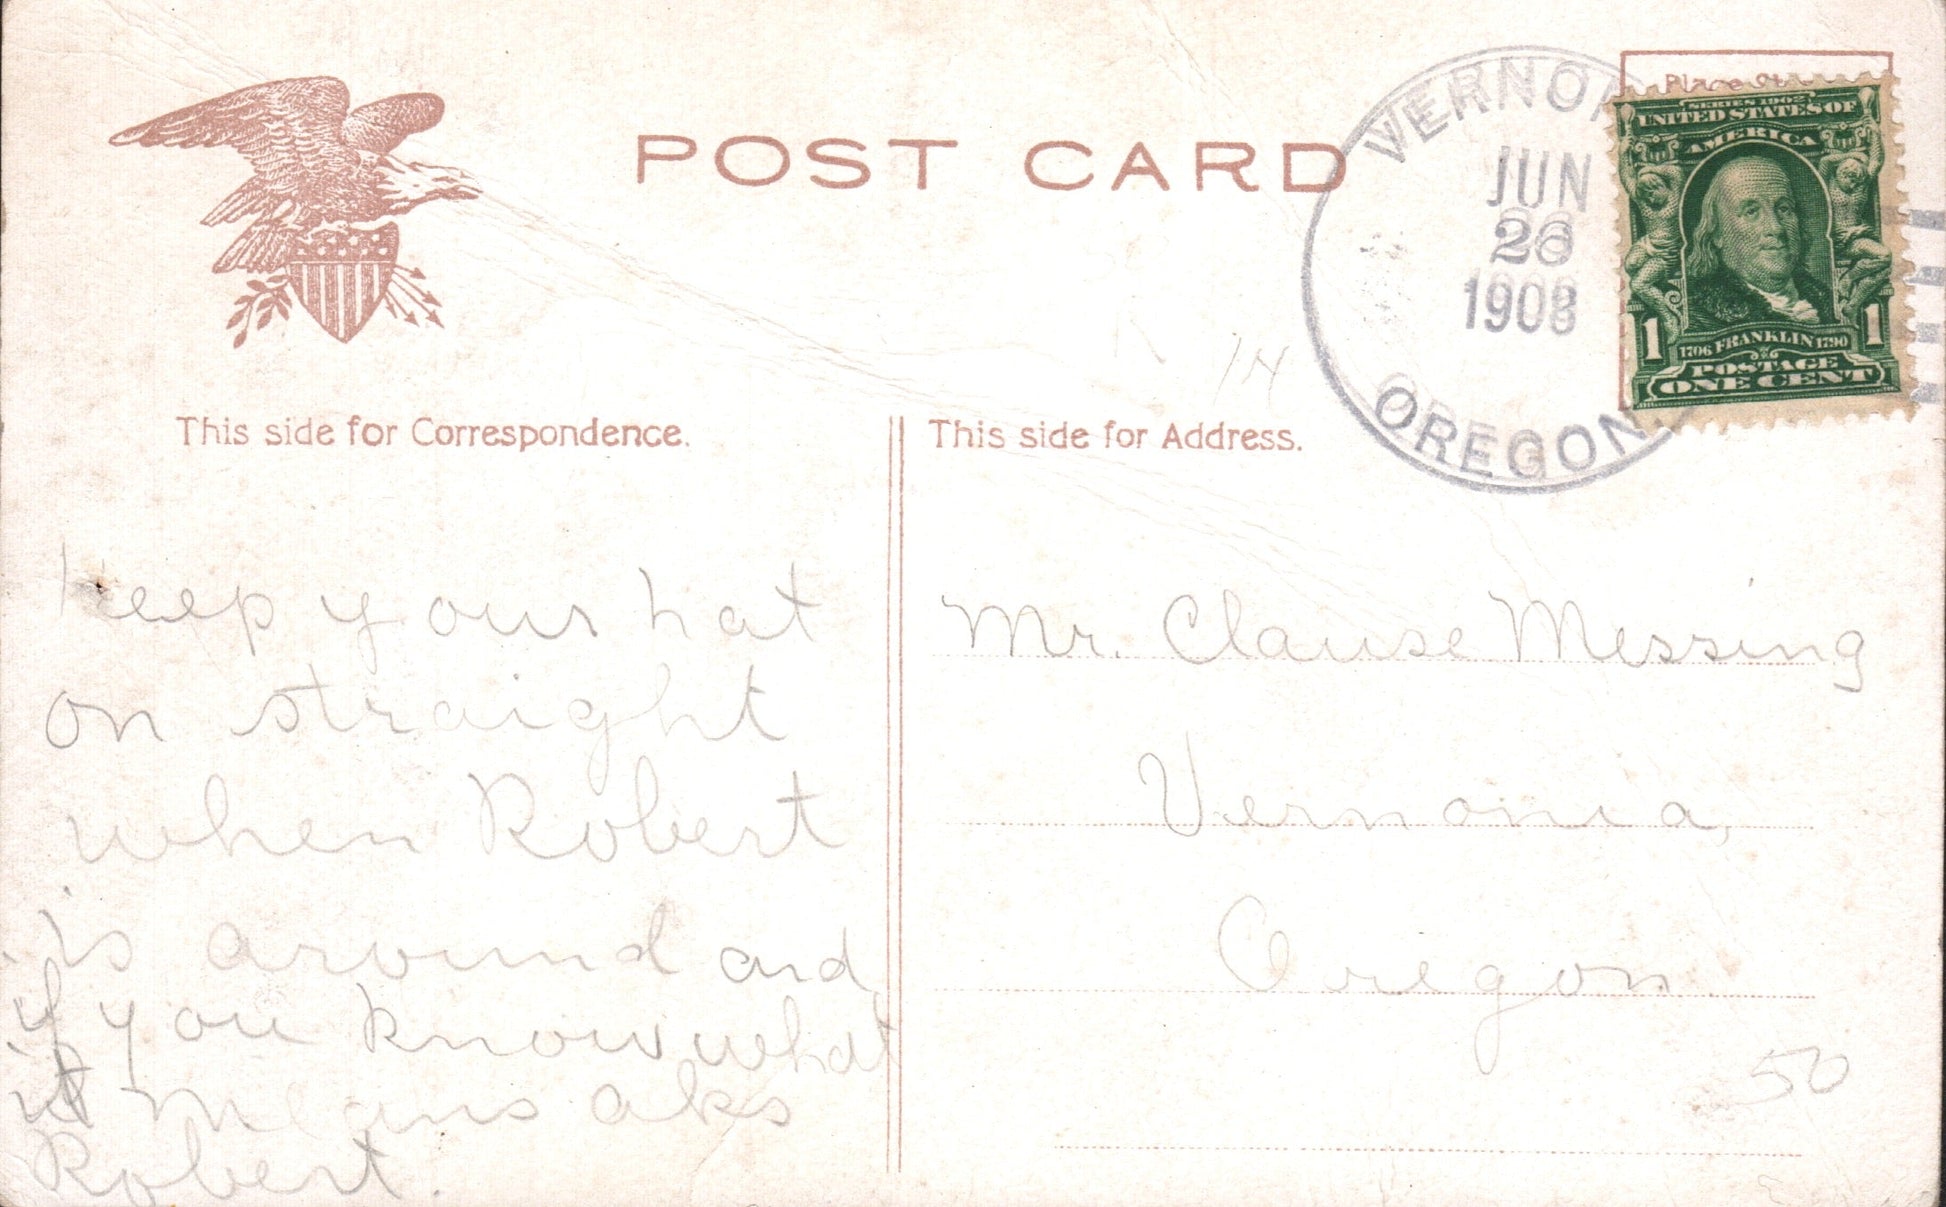 POST CARD
VERNON
JUN
26
1908
OREGON.
Place St
SERIES 1902
UNITED STATES OF
AMERICA
1 1
1706 FRANKLIN 1790
POSTAGE
ONE CENT
14
This side for Correspondence.
Keep your hat
on straight
when Robert
is around and
if you know what
it means aks
Robert.
This side for Address.
Mr. Clause Messing
Vernonia,
Oregon.
50